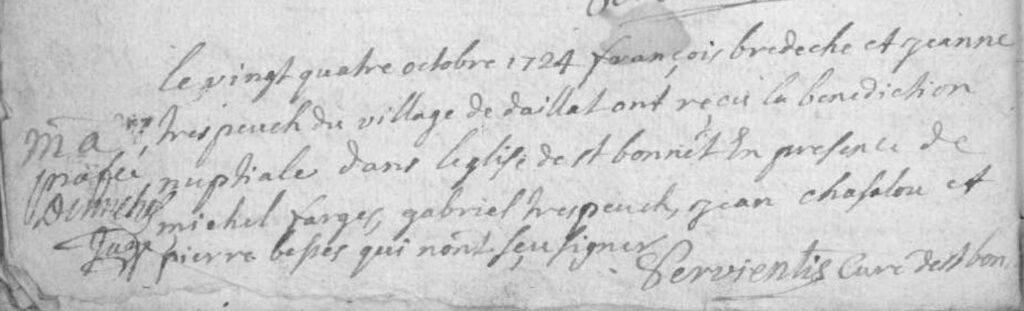 le vingt quatre octobre 1724 françois bredeche et jeanne
trespeuch du village de daillat ont reçu la benediction
nuptiale dans leglise de st bonnet En presence de
michel farges, gabriel trespeuch, jean chasalou et
pierre besses qui nont sçeu signer
Servientis Curé de st bon